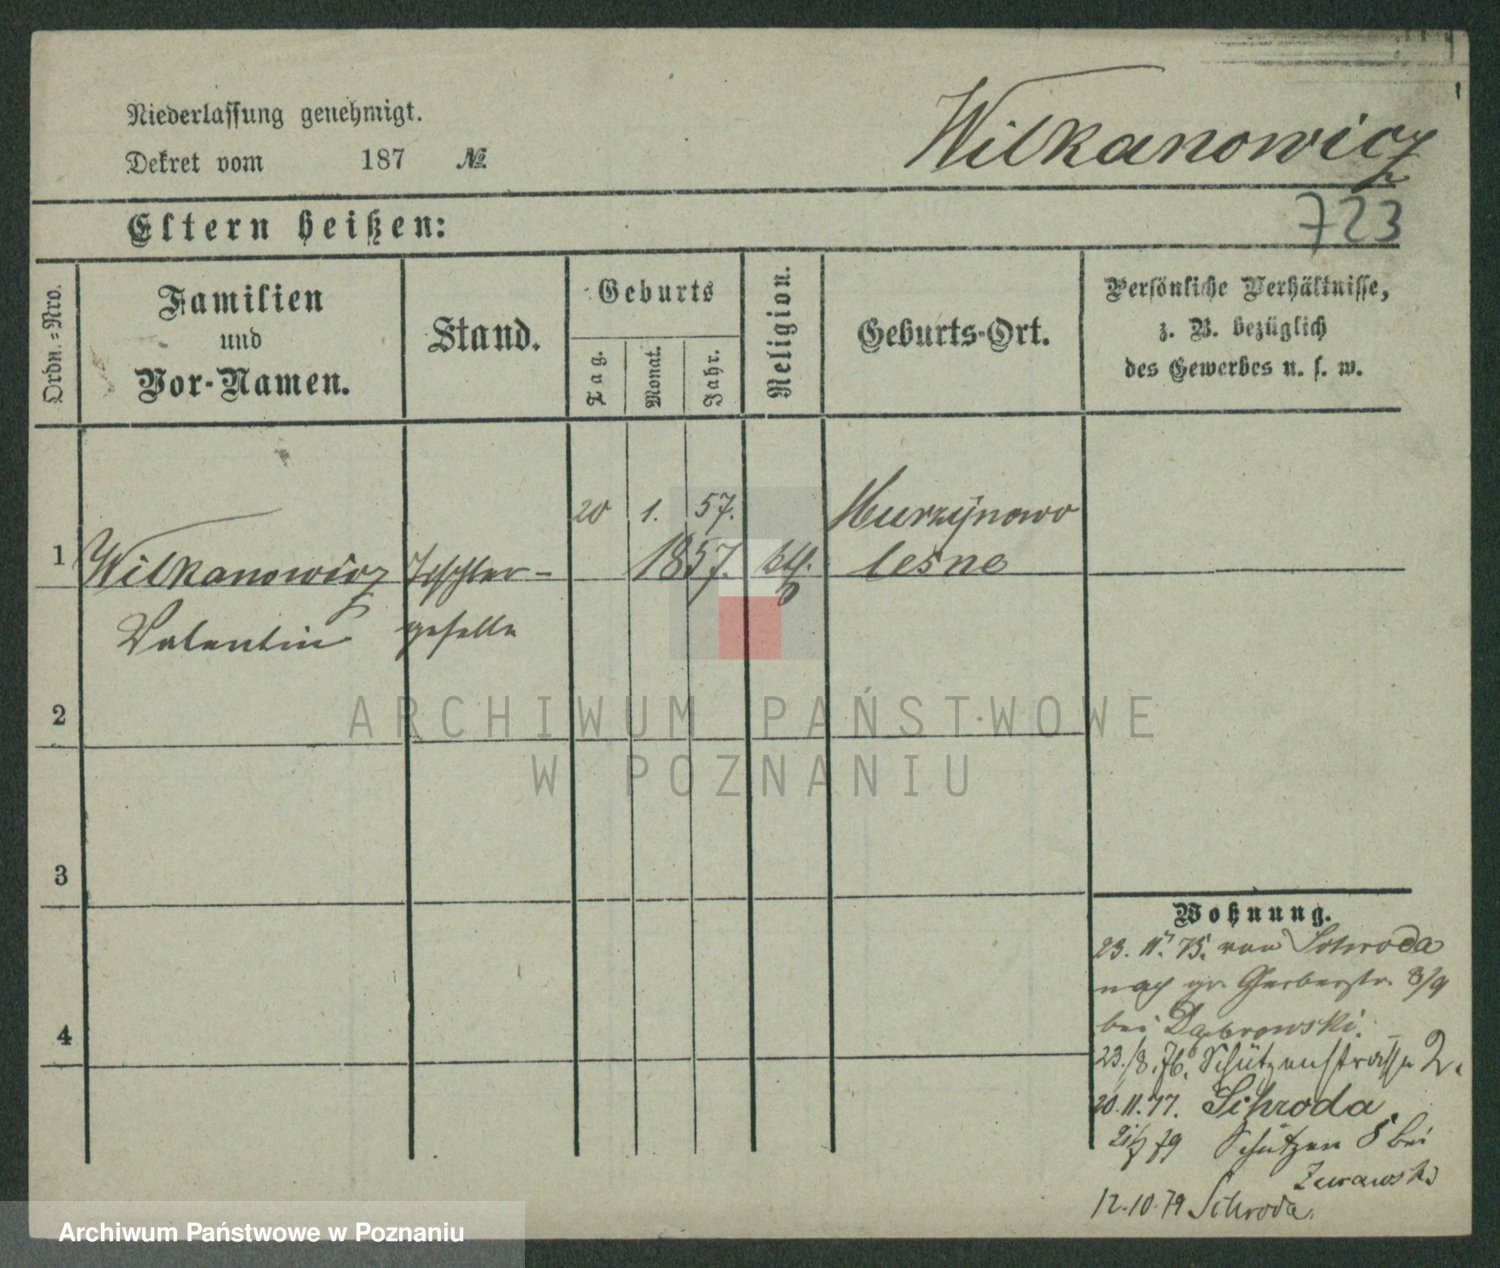 Niederlassung genehmigt.
Wilkanowicz
Dekret vom 187 №
Eltern heißen:
723
Ordn.-Nro.
Familien
und
Vor-Namen.
Stand.
Geburts
Tag.
Monat.
Jahr.
Religion.
Geburts-Ort.
Persönliche Verhältnisse,
z. B. bezüglich
des Gewerbes u. s. w.
20 1. 57. Murzynowo
1 Wilkanowicz Tischler- 1857. kth. leśne
Valentin geselle
2
3
4
Wohnung.
23. 11. 75. von Schroda
nach gr. Gerberstr. 8/9
bei Dąbrowski.
23./8. 76. Schützenstrasse 2.
20. 11. 77. Schroda.
79 Schützen 8 bei
Zurawski
12.10.79 Schroda.
ARCHIWUM PAŃSTWOWE
W POZNANIU
Archiwum Państwowe w Poznaniu